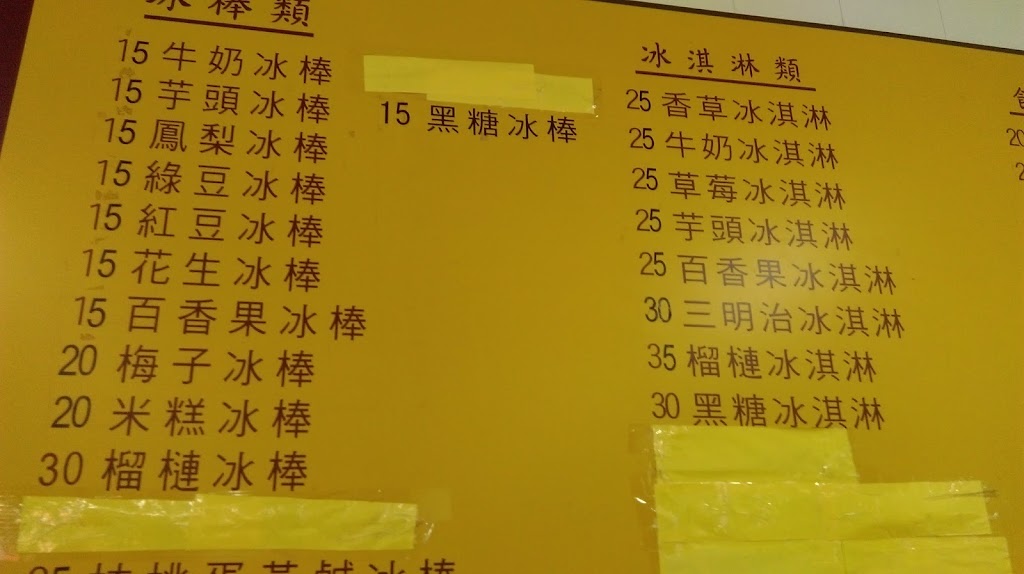 冰棒類
15 牛奶冰棒
15 芋頭冰棒
15 鳳梨冰棒
15 綠豆冰棒
15 紅豆冰棒
15 花生冰棒
15 百香果冰棒
20 梅子冰棒
20 米糕冰棒
30 榴槤冰棒
15 黑糖冰棒
冰淇淋類
25 香草冰淇淋
25 牛奶冰淇淋
25 草莓冰淇淋
25 芋頭冰淇淋
25 百香果冰淇淋
30 三明治冰淇淋
35 榴槤冰淇淋
30 黑糖冰淇淋
20